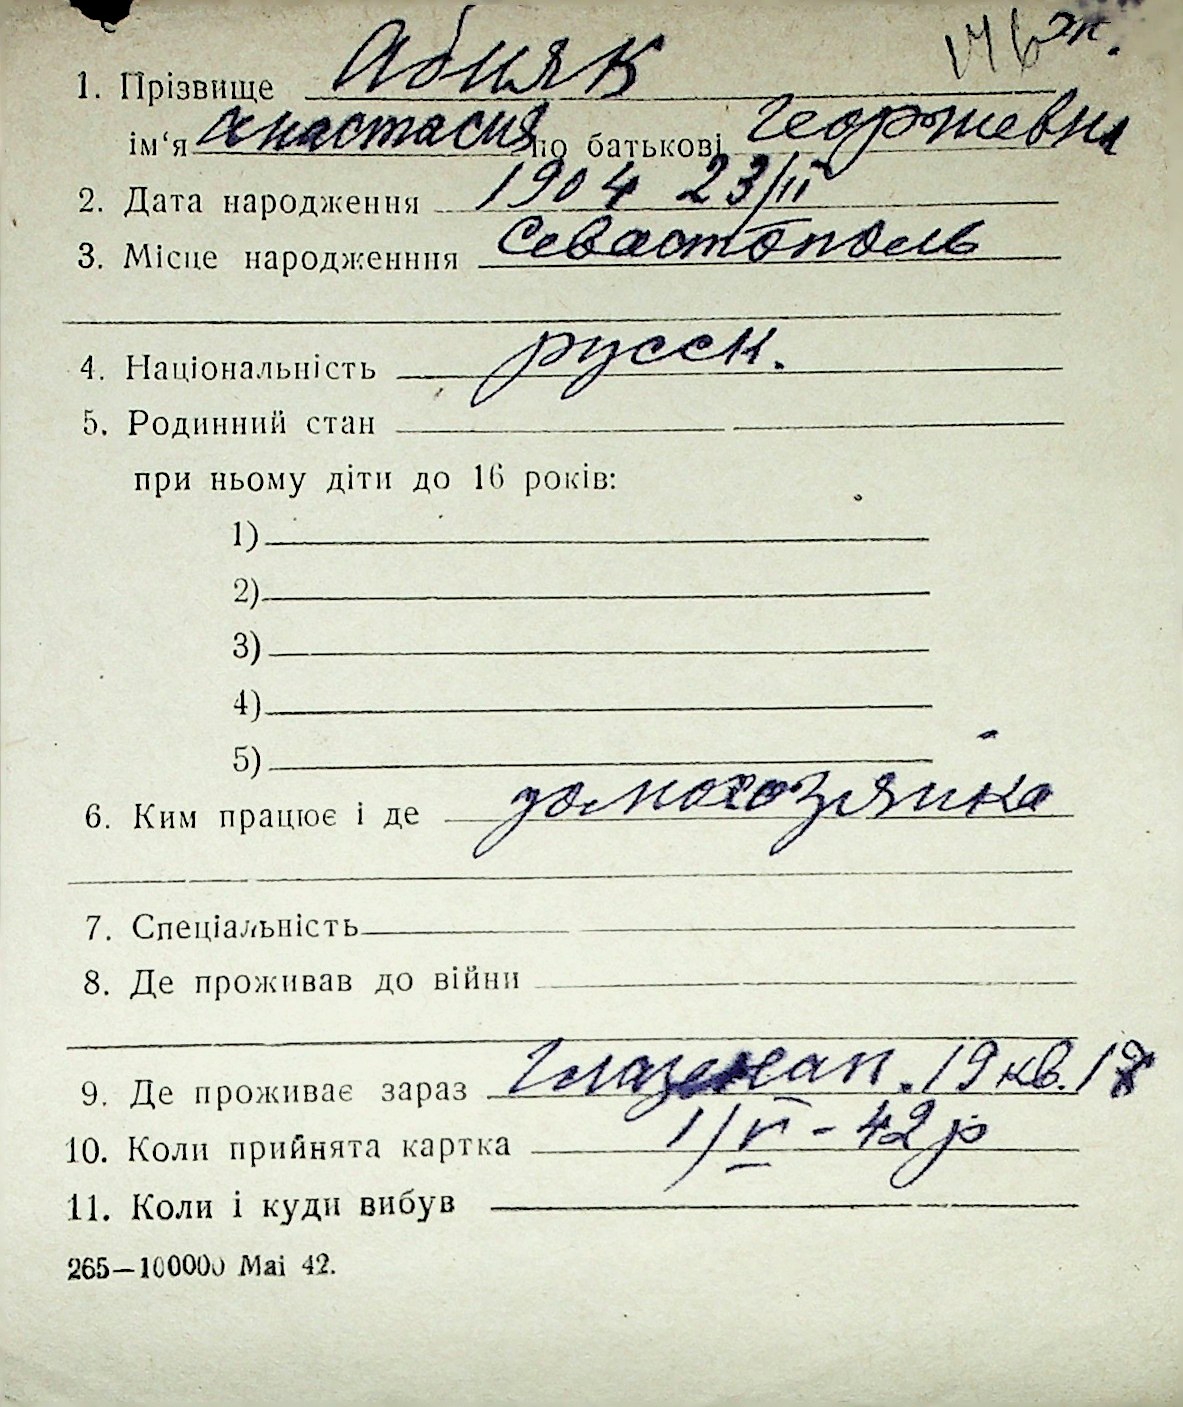 146 ж.
1. Прізвище Абияк
ім‘я Анастасия по батькові Георгиевна
2. Дата народження 1904 23/II
3. Місце народженння Севастополь
4. Національність русск.
5. Родинний стан
при ньому діти до 16 років:
1)
2)
3)
4)
5)
6. Ким працює і де домохозяйка
7. Спеціальність
8. Де проживав до війни
9. Де проживає зараз Глазенап. 19 кв. 18
10. Коли прийнята картка 1/VI - 42 р
11. Коли і куди вибув
265—100000 Mai 42.